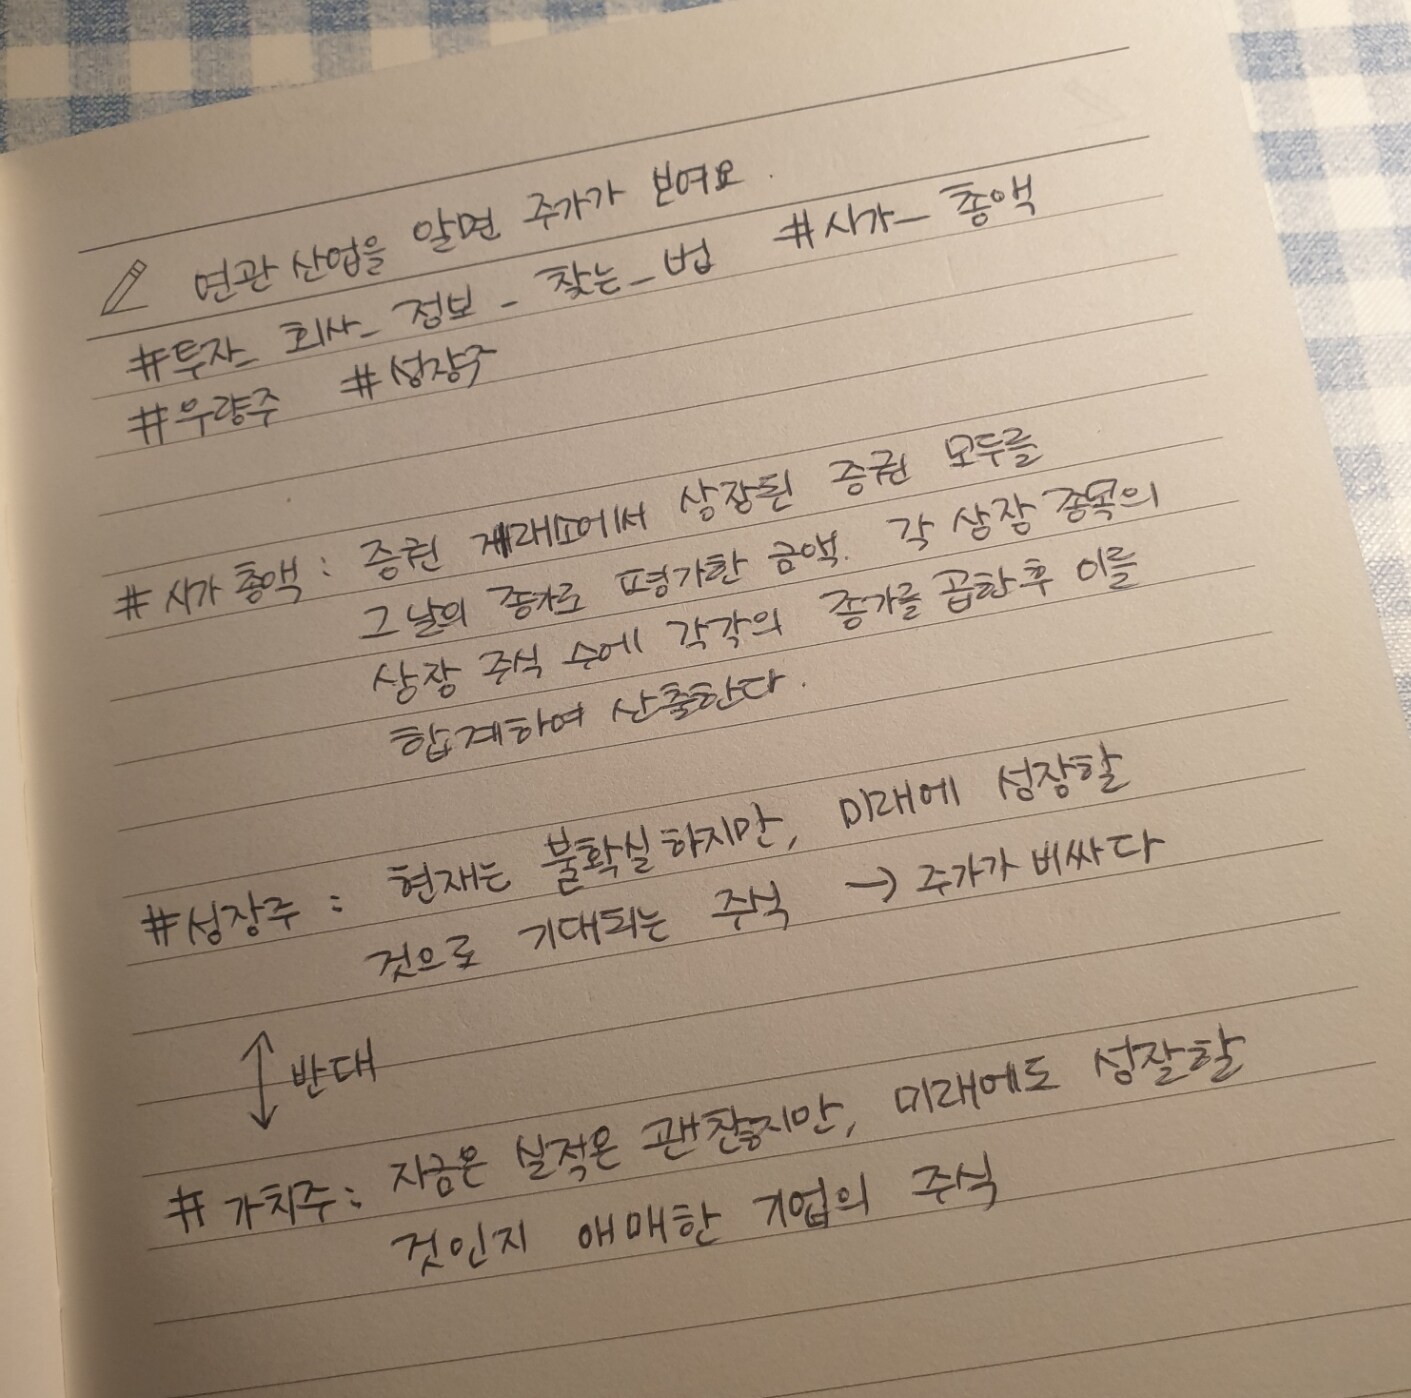 연관 산업을 알면 주가가 보여요.
#투자_ 회사_ 정보_ 찾는_법 #시가_ 총액
#우량주 #성장주
#시가 총액 : 증권 거래소에서 상장된 증권 모두를
그 날의 종가로 평가한 금액. 각 상장 종목의
상장 주식 수에 각각의 종가를 곱한 후 이를
합계하여 산출한다.
#성장주 : 현재는 불확실하지만, 미래에 성장할
것으로 기대되는 주식 → 주가가 비싸다
↕ 반대
# 가치주 : 지금은 실적은 괜찮지만, 미래에도 성잘할
것인지 애매한 기업의 주식